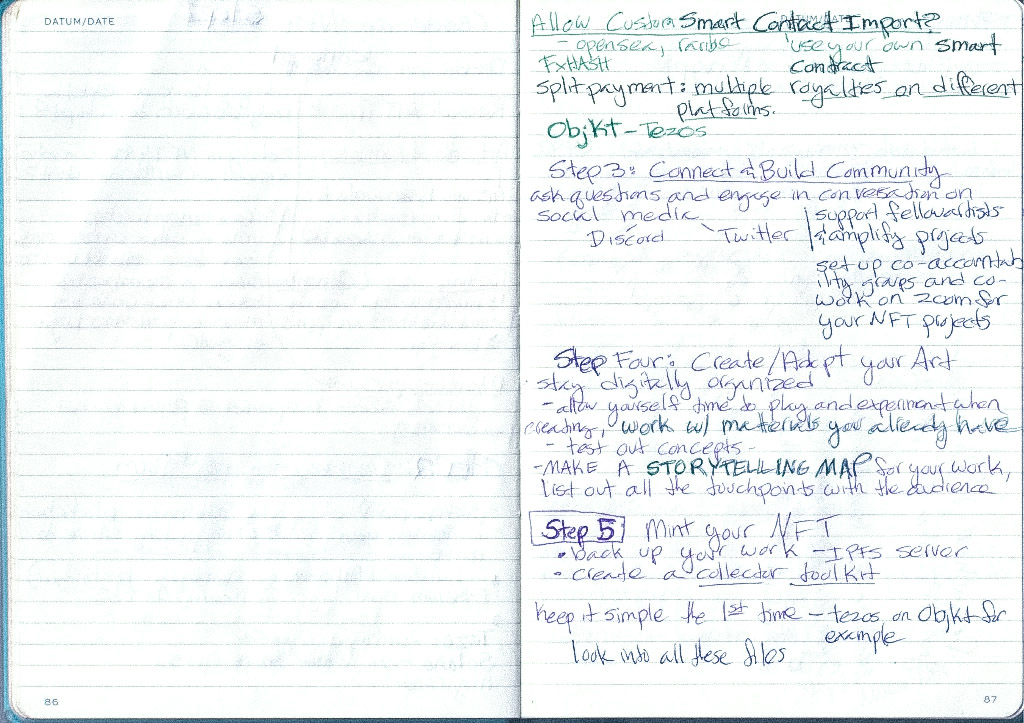 DATUM/DATE
86
DATUM/DATE
Allow Custom Smart Contact Import?
- opensea, rarible "use your own smart
FxHASH contract
split payment: multiple royalties on different
platforms.
Objkt - Tezos
Step 3: Connect & Build Community
ask questions and engage in conversation on
social media
Discord Twitter
support fellow artists
& amplify projects
set up co-accountab
ility groups and co-
work on zoom for
your NFT projects
Step Four: Create/Adopt your Art
stay digitally organized
- allow yourself time to play and experiment when
creating, work w/ materials you already have
- test out concepts -
- MAKE A STORYTELLING MAP for your work,
list out all the touchpoints with the audience
Step 5 Mint your NFT
• back up your work - IPFS server
• create a collector toolkit
keep it simple the 1st time - tezos on Objkt for
example
look into all these files
87